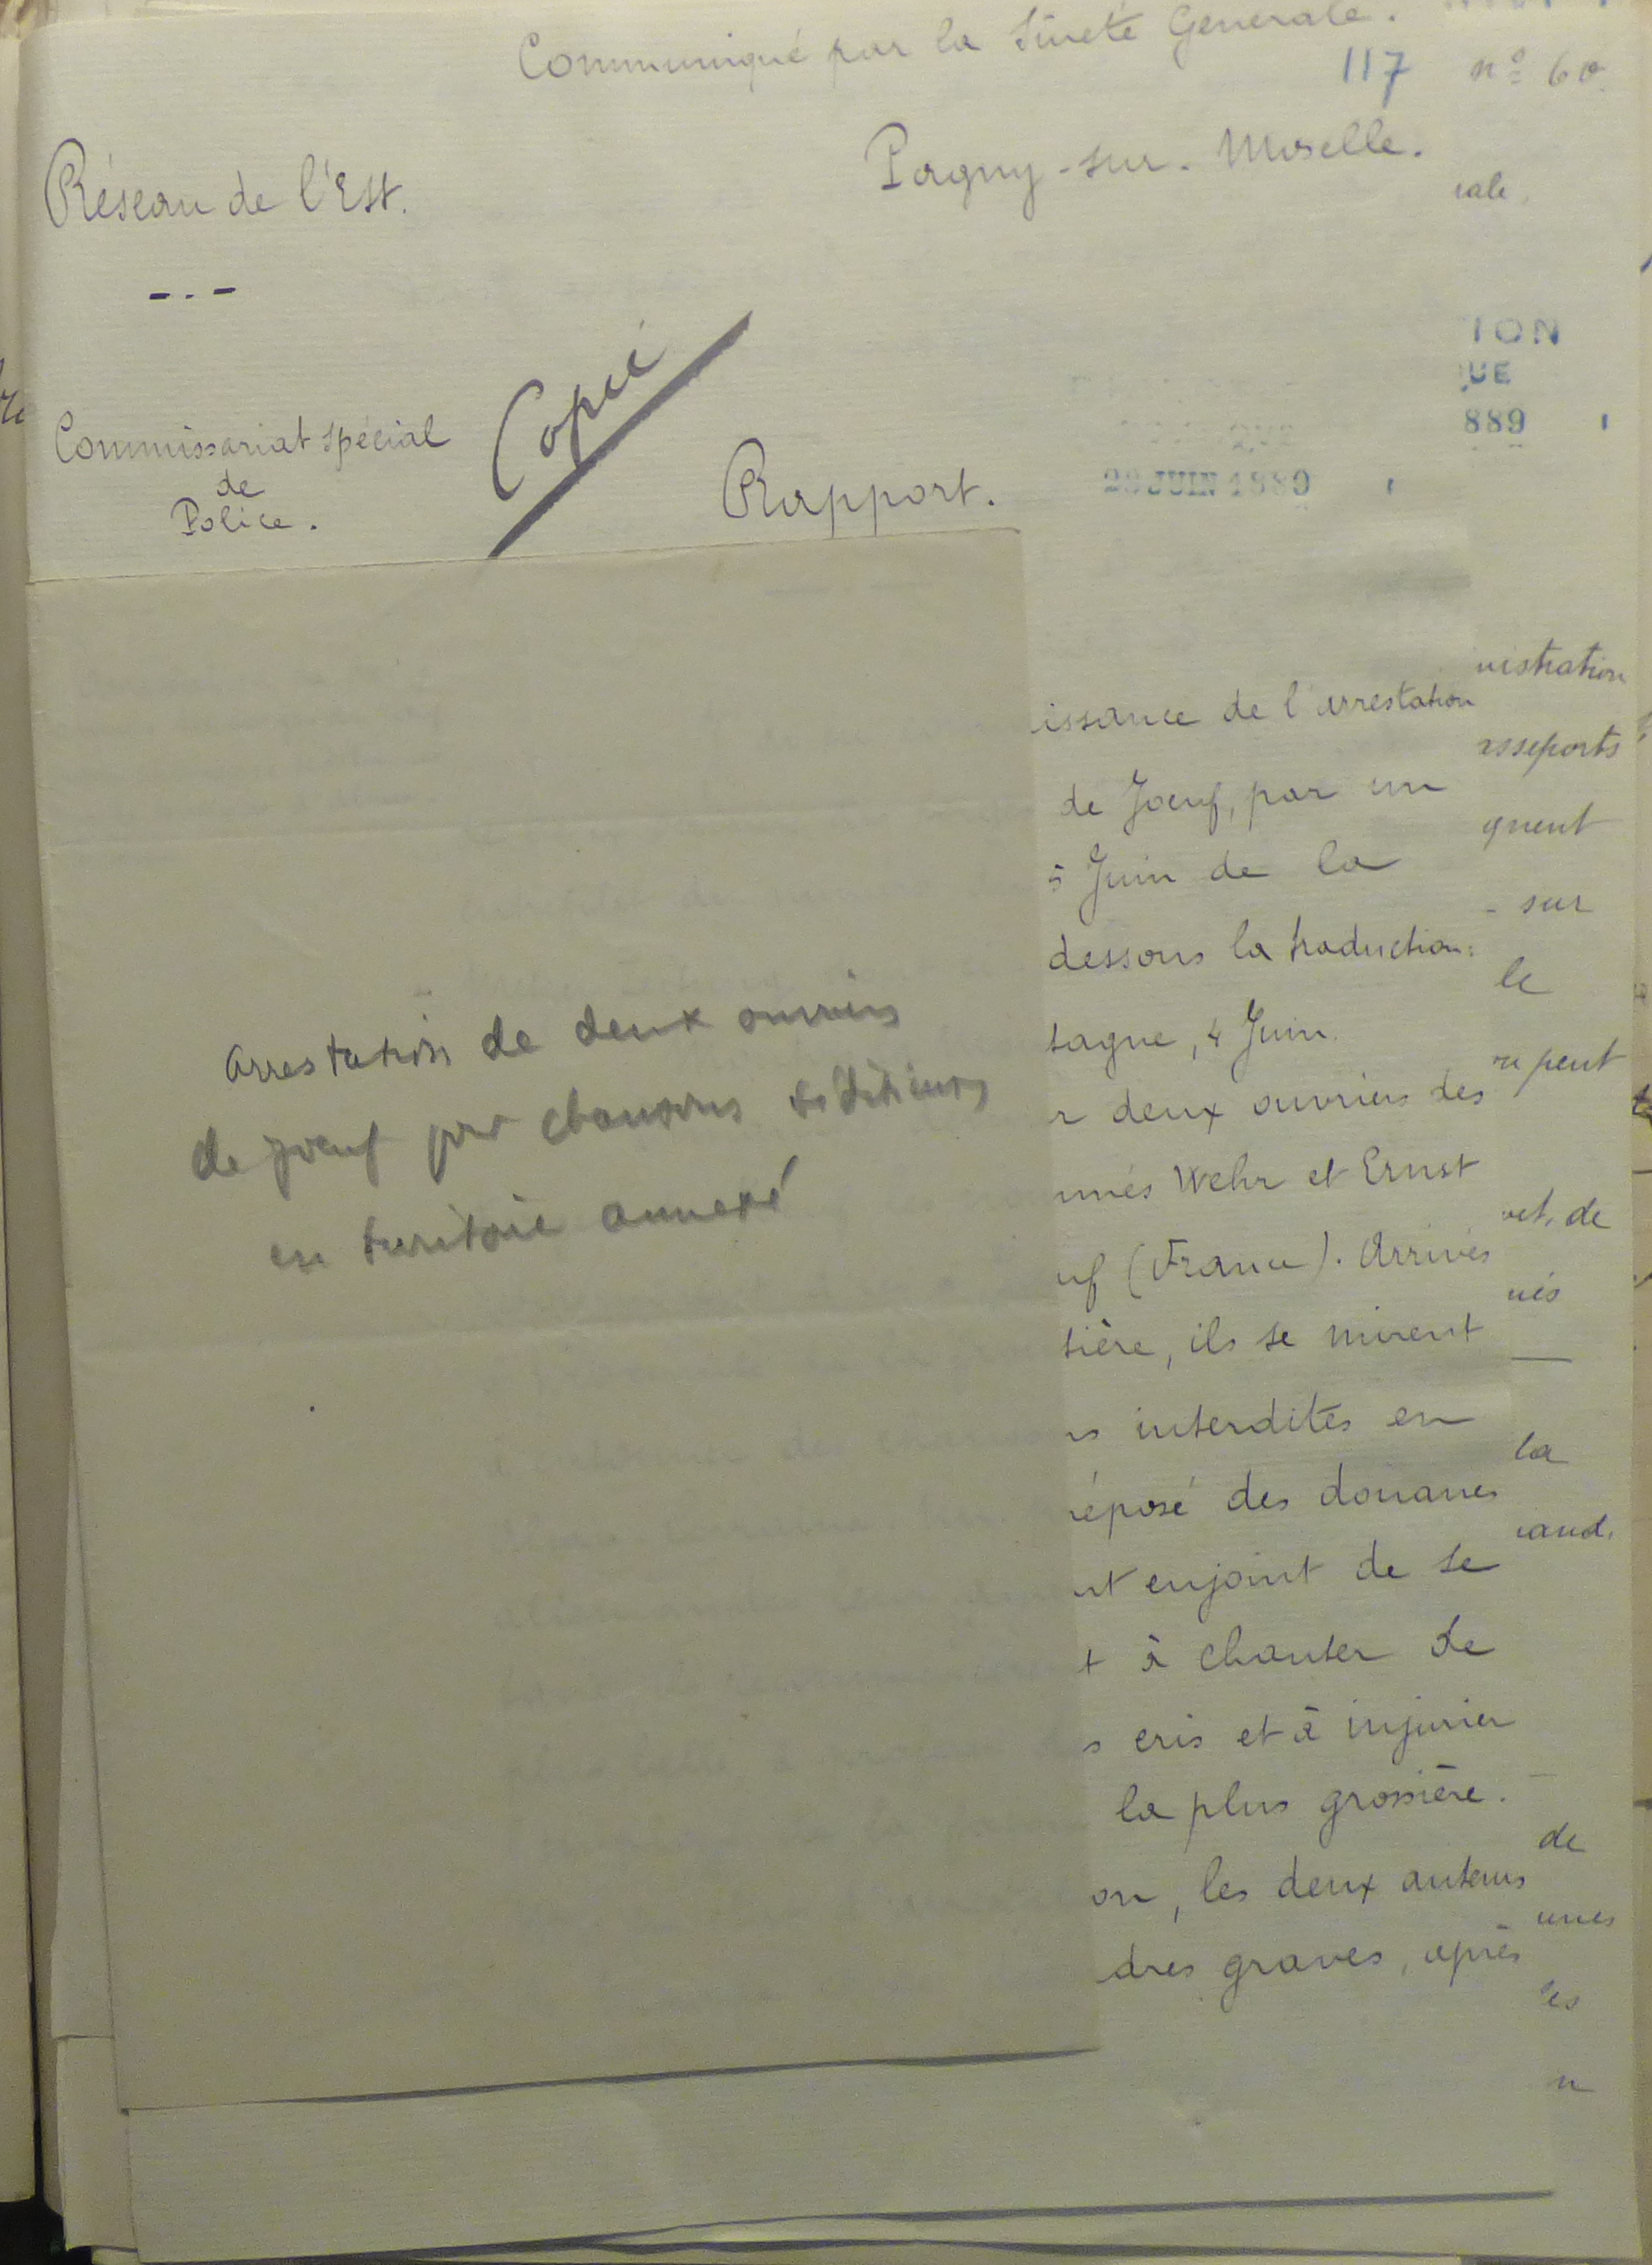 Communiqué par la Sûreté Générale.
117 nº 60
Pagny-sur-Moselle.
Réseau de l'Est.
Commissariat spécial
de
Police.
Copie
Rapport.
29 JUIN 1889
issance de l'arrestation
de Joeuf, par un
5 Juin de la
dessous la traduction:
tagne, 4 Juin.
r deux ouvriers des
més Wehr et Ernst
uf (France). Arrivés
tière, ils se mirent
s interdites en
réposé des douanes
nt enjoint de se
t à chanter de
s cris et à injurier
la plus grossière.
on, les deux auteurs
dres graves, après
Arrestation de deux ouvriers
de Joeuf pour chansons séditieuses
en territoire annexé
iale
ION
UE
889
nistration
asseports
gnent
- sur
le
peut
et, de
nés
la
and.
de
unes
les
n